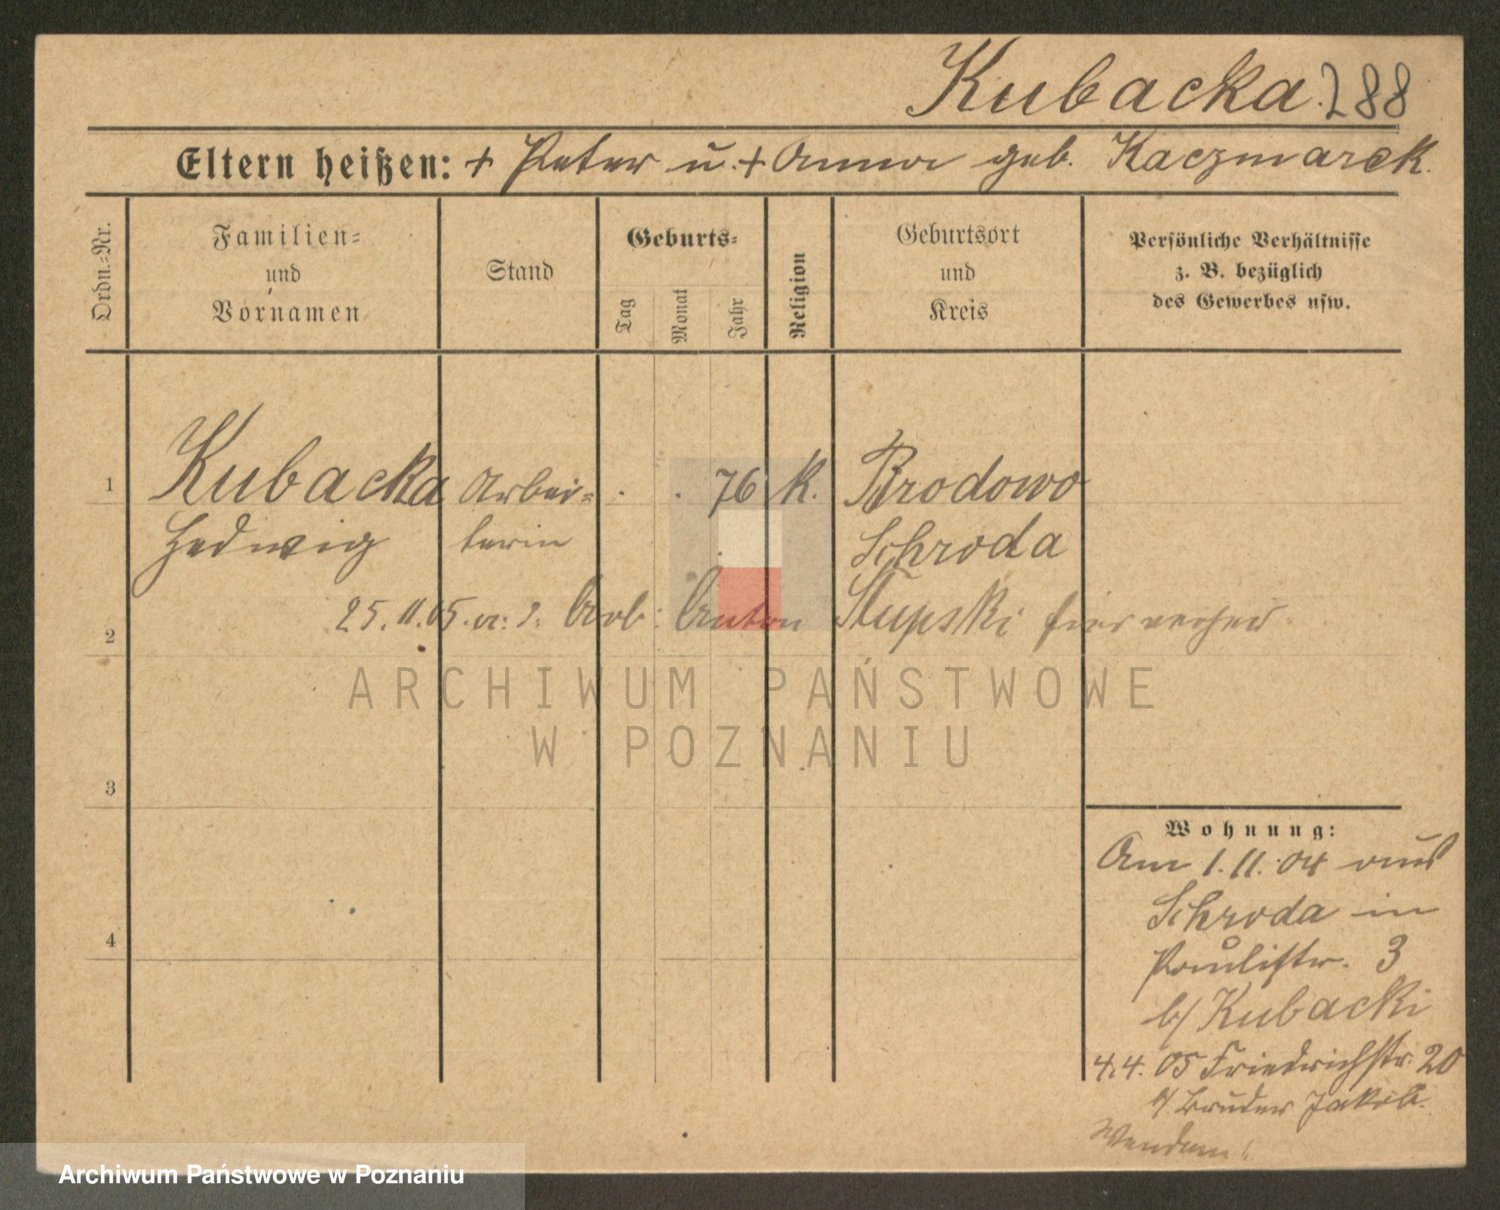 Kubacka. 288
Eltern heißen: + Peter u. + Anna geb. Kaczmarek.
Ordn.-Nr.
Familien-
und
Vornamen
Stand
Geburts-
Tag
Monat
Jahr
Religion
Geburtsort
und
Kreis
Persönliche Verhältnisse
z. B. bezüglich
des Gewerbes usw.
1 Kubacka Arbei- . . 76 K. Brodowo
Hedwig terin Schroda
2 25.11.05. Arb. Anton Slupski hier verher.
3
4
Wohnung:
Am 1.11.04 aus
Schroda in
Paulistr. 3
b/ Kubacki
4.4.05 Friedrichstr. 20
b/ Bruder Jakob.
ARCHIWUM PAŃSTWOWE
W POZNANIU
Archiwum Państwowe w Poznaniu